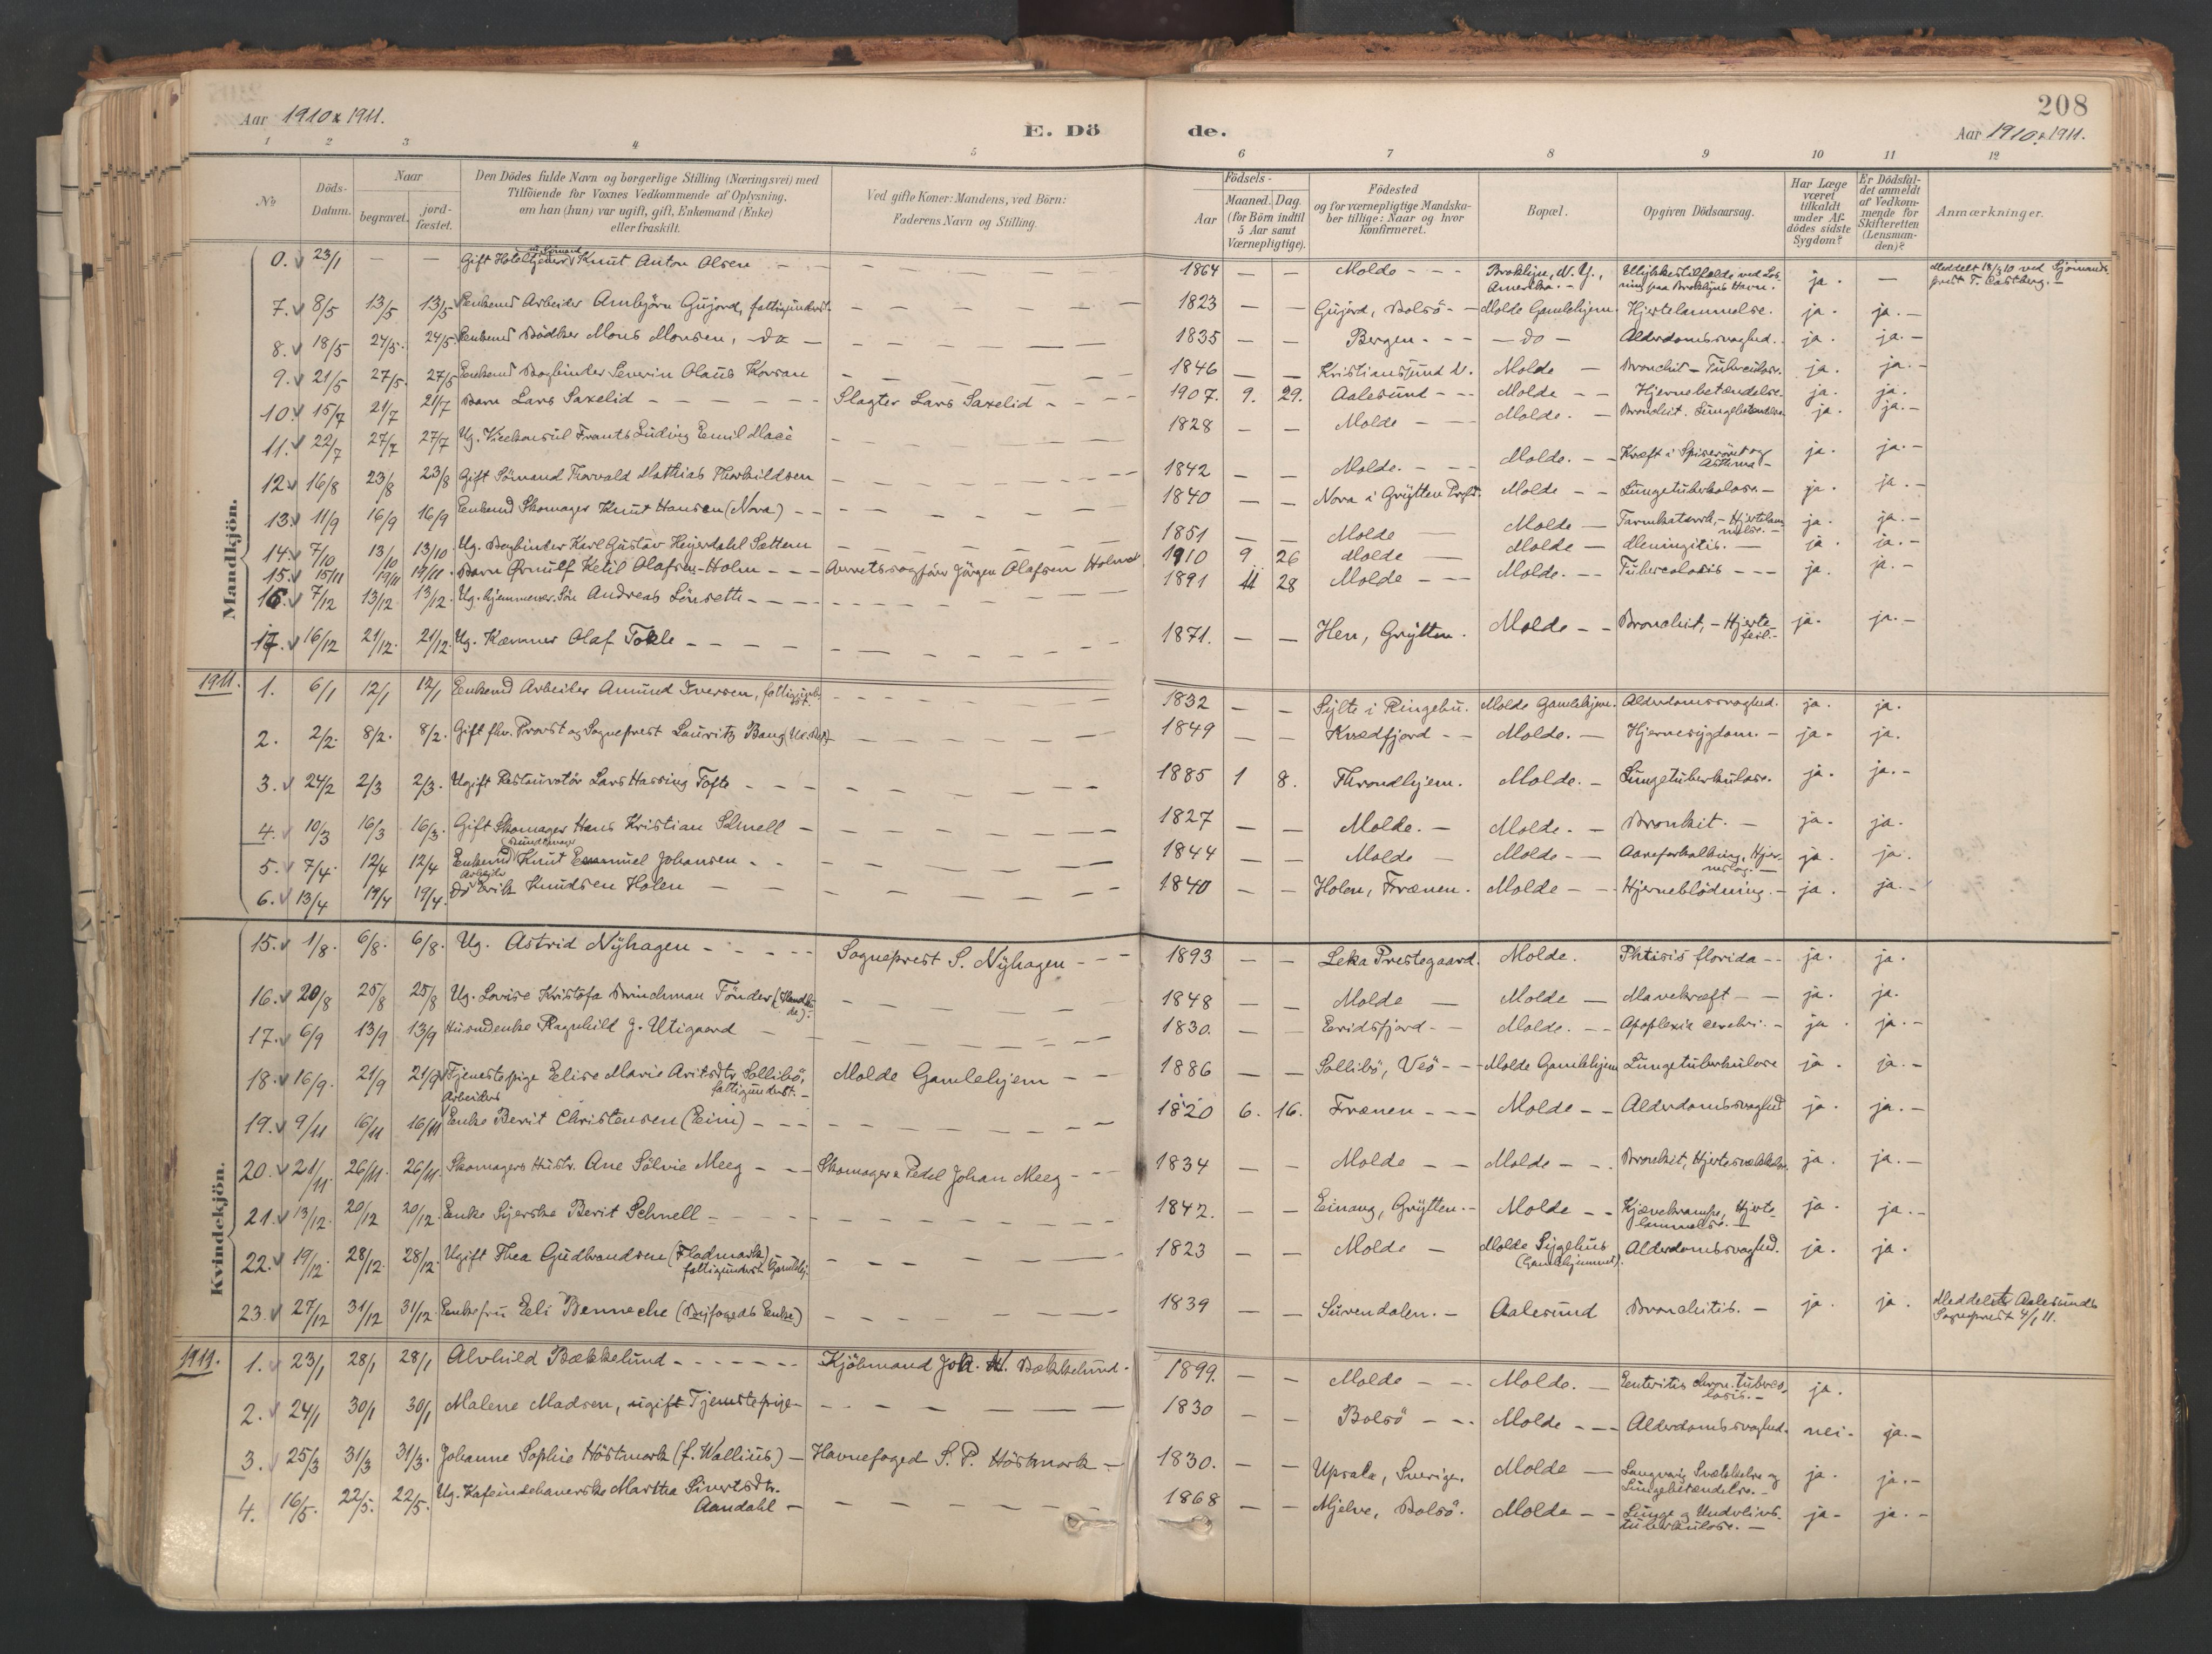 208
Aar 1910 & 1911.
E. Dö de.
Aar 1910 & 1911.
1 2 3 4 5 6 7 8 9 10 11 12
No
Döds-Datum.
Naar
begravet.
jord-fæstet.
Den Dödes fulde Navn og borgerlige Stilling (Næringsvei) med
Tilföiende for Voxnes Vedkommende af Oplysning,
om han (hun) var ugift, gift, Enkemand (Enke)
eller fraskilt.
Ved gifte Koner: Mandens, ved Börn:
Faderens Navn og Stilling.
Födsels-
Aar
Maaned. Dag.
(for Börn indtil
5 Aar samt
Værnepligtige).
Födested
og for værnepligtige Mandska-
ber tillige: Naar og hvor
konfirmeret.
Bopæl.
Opgiven Dödsaarsag.
Har Læge
været
tilkaldt
under Af-
dödes sidste
Sygdom?
Er Dödsfal-
det anmeldt
af Vedkom-
mende for
Skifteretten
(Lensman-
den)?
Anmærkninger.
Mandkjön.
0. 23/1 — — Gift Hoteltjener Knut Anton Olsen 1864 — — Molde Broklyn, N. Y., Amerika. Ulykkestilfælde ved Los-
ning paa Broklyns Havn. ja. — Meddelt 18/3 10 ved Sjömands-
prest T. Castberg.
7. 8/5 13/5 13/5 Enkemd Arbeider Ambjörn Gujord, fattigunderst. 1823 — — Gujord, Bolsö Molde Gamlehjem. Hjertelammelse. ja. ja.
8. 18/5 24/5 24/5 Enkemd Bödker Mons Monsen, do 1835 — — Bergen do Alderdomssvaghed. ja. ja.
9. 21/5 27/5 27/5 Enkemd Bogbinder Severin Olaus Korsan 1846 — — Kristianssund N. Molde Bronchit - Tuberculose. ja. ja.
10. 15/7 21/7 21/7 Barn Lars Saxelid Slagter Lars Saxelid 1907. 9. 29. Aalesund Molde Hjernebetændelse. ja. ja.
11. 22/7 27/7 27/7 Ug. Vicekonsul Frants Luding Emil Macé 1828 — — Molde Molde. Bronchit. Lungebetændelse ja. ja.
12. 16/8 23/8 23/8 Gift Sömand Thorvald Mathias Thorkildsen 1842 — — Molde. Molde. Kræft i Spiseröret og
Asthma ja. ja.
13. 11/9 16/9 16/9 Enkemd Skomager Knut Hansen (Nora) 1840 — — Nora i Grytten Prgd. Molde Lungetuberkulose. ja. ja.
14. 7/10 13/10 13/10 Ug. Bogbinder Karl Gustav Heyerdahl Sættem 1851 — — Molde Molde Tarmkatarrh, - Hjertelam-
melse. ja. ja.
15. 15/11 19/11 19/11 Barn Ørnulf Ketil Olafsen-Holm Overretssagförer Jörgen Olafsen Holm 1910 9 26 Molde Molde Meningitis. ja. ja.
16. 7/12 13/12 13/12 Ug. hjemmevær. Sön Andreas Lönseth 1891 11 28 Molde Molde. Tuberculosis ja. ja.
17. 16/12 21/12 21/12 Ug. Kæmner Olaf Tokle 1871. — — Hen, Grytten. Molde Bronchit, - Hjerte-
feil. ja. ja.
1911.
1. 6/1 12/1 12/1 Enkemd Arbeider Amund Iversen, fattigunderst. 1832 — — Sylte i Ringebu. Molde Gamlehjem. Alderdomssvaghed. ja. ja.
2. 2/2 8/2 8/2 Gift fhv. Provst og Sogneprest Lauritz Bang 1849 — — Kvædfjord Molde. Hjernesygdom. ja. ja.
3. 24/2 2/3 2/3 Ugift Restauratör Lars Hassing Tofte 1885 1 8. Throndhjem. Molde. Lungetuberkulose. ja. ja.
4. 10/3 16/3 16/3 Gift Skomager Hans Kristian Schnell 1827 — — Molde. Molde. Bronkit. ja. ja.
5. 7/4 12/4 12/4 Enkemd Knut Emanuel Johansen 1844 — — Molde Molde Aareforkalkning, Hjer-
neslag. ja. ja.
6. 13/4 19/4 19/4 do Arbeider Erik Knudsen Holen 1840 — — Holen, Frænen. Molde Hjerneblödning. ja. ja.
Kvindekjön.
15. 1/8 6/8 6/8 Ug. Astrid Nyhagen Sogneprest S. Nyhagen 1893 — — Leka Prestegaard. Molde. Phtisis florida ja. ja.
16. 20/8 25/8 25/8 Ug. Lovise Kristofa Brinchman Tönder 1848 — — Molde Molde Mavekræft ja. ja.
17. 6/9 13/9 13/9 Husmdenke Ragnhild J. Utigaard 1830. — — Eridsfjord Molde. Apoplexia cerebri. ja. ja.
18. 16/9 21/9 21/9 Tjenestepige Elise Marie Aritsdtr Sollibö,
fattigunderst. Molde Gamlehjem 1886 — — Sollibö, Veö Molde Gamlehjem Lungetuberkulose ja. ja.
19. 9/11 16/11 16/11 Arbeiders Enke Berit Christensen (Eim) 1820 6. 16. Frænen Molde Alderdomssvaghed ja. ja.
20. 21/11 26/11 26/11 Skomagers Hustr. Ane Sölvie Meeg Skomager & Pedel Johan Meeg 1834 — — Molde Molde Bronchit, Hjertesvækkelse. ja. ja.
21. 13/12 20/12 20/12 Enke Syerske Berit Schnell 1842. — — Einang, Grytten. Molde Kjævekrampe, Hjerte-
lammelse. ja. ja.
22. 19/12 28/12 28/12 Ugift Thea Gudbrandsen (Fladmark)
fattigunderst. Gamlehj. 1823 — — Molde Molde Sygehus
(Gamlehjemmet). Alderdomssvaghed. ja. ja.
23. 27/12 31/12 31/12 Enkefru Eli Benneche (Byfogeds Enke) 1839 — — Surendalen. Aalesund Bronchitis. ja. ja. Meddelt Aalesunds
Sogneprest 4/1 11.
1911.
1. 23/1 28/1 28/1 Alvhild Bækkelund Kjöbmand Joh. M. Bækkelund 1899. — — Molde Molde. Enteritis chron. tubercu-
losis. ja.
2. 24/1 30/1 30/1 Malene Madsen, ugift Tjenestepige 1830 — — Bolsö Molde Alderdomssvaghed. nei. ja.
3. 25/3 31/3 31/3 Johanne Sophie Höstmark (f. Wallius) Havnefoged S. P. Höstmark 1830. — — Upsala, Sverige. Molde Langvarig Svækkelse og
Lungebetændelse. ja. ja.
4. 16/5 22/5 22/5 Ug. Kafeindehaverske Martha Sivertsdtr.
Aandahl 1868 — — Mjelve, Bolsö. Molde Lunge & Underlivs-
tuberkulose. ja. ja.